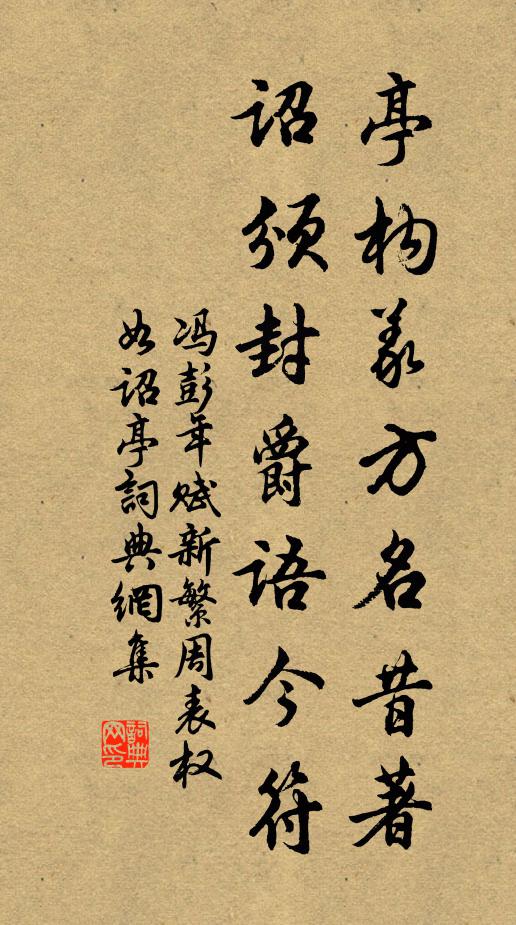 亭构义方名昔著
诏颁封爵语今符
冯彭年赋新繁周表权
如诏亭詞典網集
詞典网印